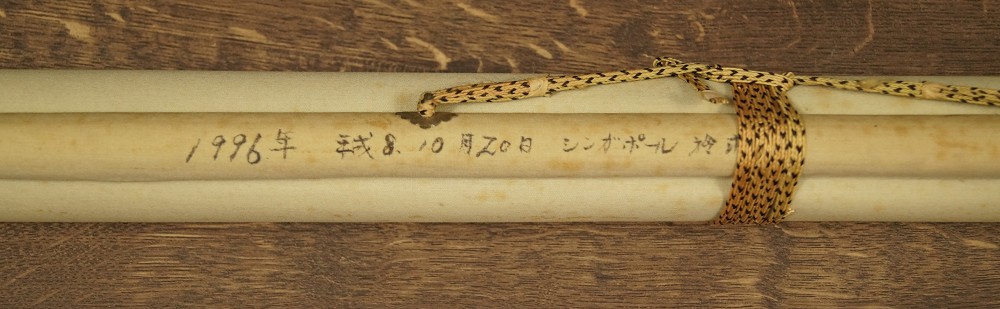 1996年 平成8.10月20日 シンガポール